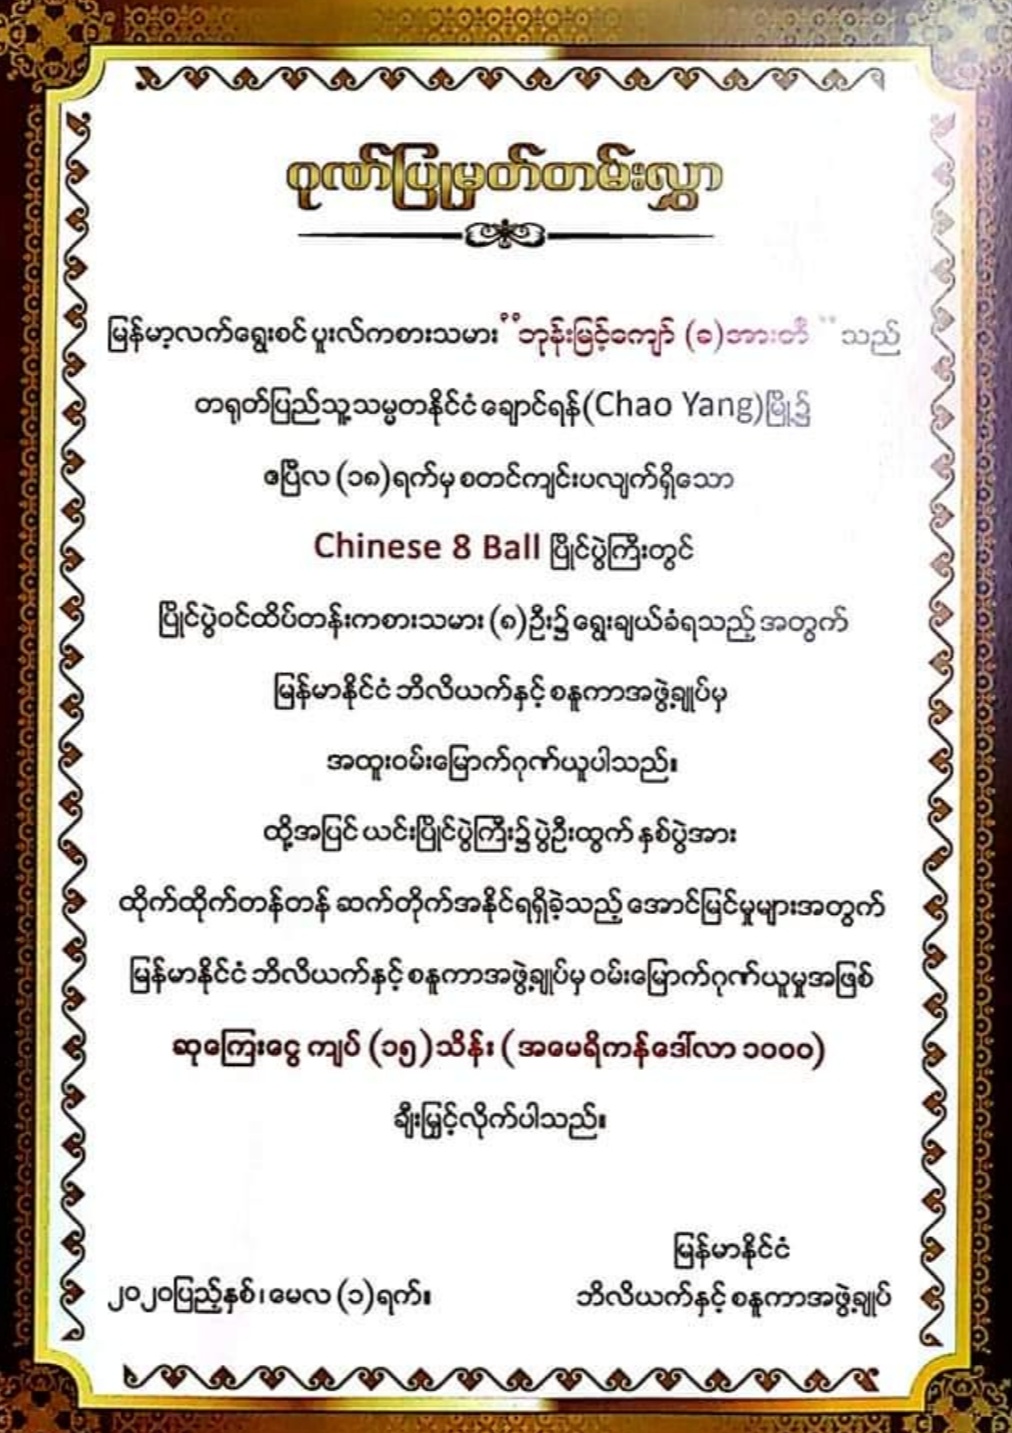 ဂုဏ်ပြုမှတ်တမ်းလွှာ
မြန်မာ့လက်ရွေးစင် ပူးလ်ကစားသမား “ဘုန်းမြင့်ကျော် (ခ)အားတီ ” သည်
တရုတ်ပြည်သူ့သမ္မတနိုင်ငံ ချောင်ရန်(Chao Yang)မြို့၌
ဧပြီလ (၁၈)ရက်မှ စတင်ကျင်းပလျက်ရှိသော
Chinese 8 Ball ပြိုင်ပွဲကြီးတွင်
ပြိုင်ပွဲဝင်ထိပ်တန်းကစားသမား (၈)ဦး၌ ရွေးချယ်ခံရသည့် အတွက်
မြန်မာနိုင်ငံ ဘိလိယက်နှင့် စနူကာအဖွဲ့ချုပ်မှ
အထူးဝမ်းမြောက်ဂုဏ်ယူပါသည်။
ထို့အပြင် ယင်းပြိုင်ပွဲကြီး၌ ပွဲဦးထွက် နှစ်ပွဲအား
ထိုက်ထိုက်တန်တန် ဆက်တိုက်အနိုင်ရရှိခဲ့သည့် အောင်မြင်မှုများအတွက်
မြန်မာနိုင်ငံ ဘိလိယက်နှင့် စနူကာအဖွဲ့ချုပ်မှ ဝမ်းမြောက်ဂုဏ်ယူမှုအဖြစ်
ဆုကြေးငွေ ကျပ် (၁၅)သိန်း ( အမေရိကန်ဒေါ်လာ ၁၀၀၀)
ချီးမြှင့်လိုက်ပါသည်။
မြန်မာနိုင်ငံ
၂၀၂၀ပြည့်နှစ်၊ မေလ (၁)ရက်။ ဘိလိယက်နှင့် စနူကာအဖွဲ့ချုပ်